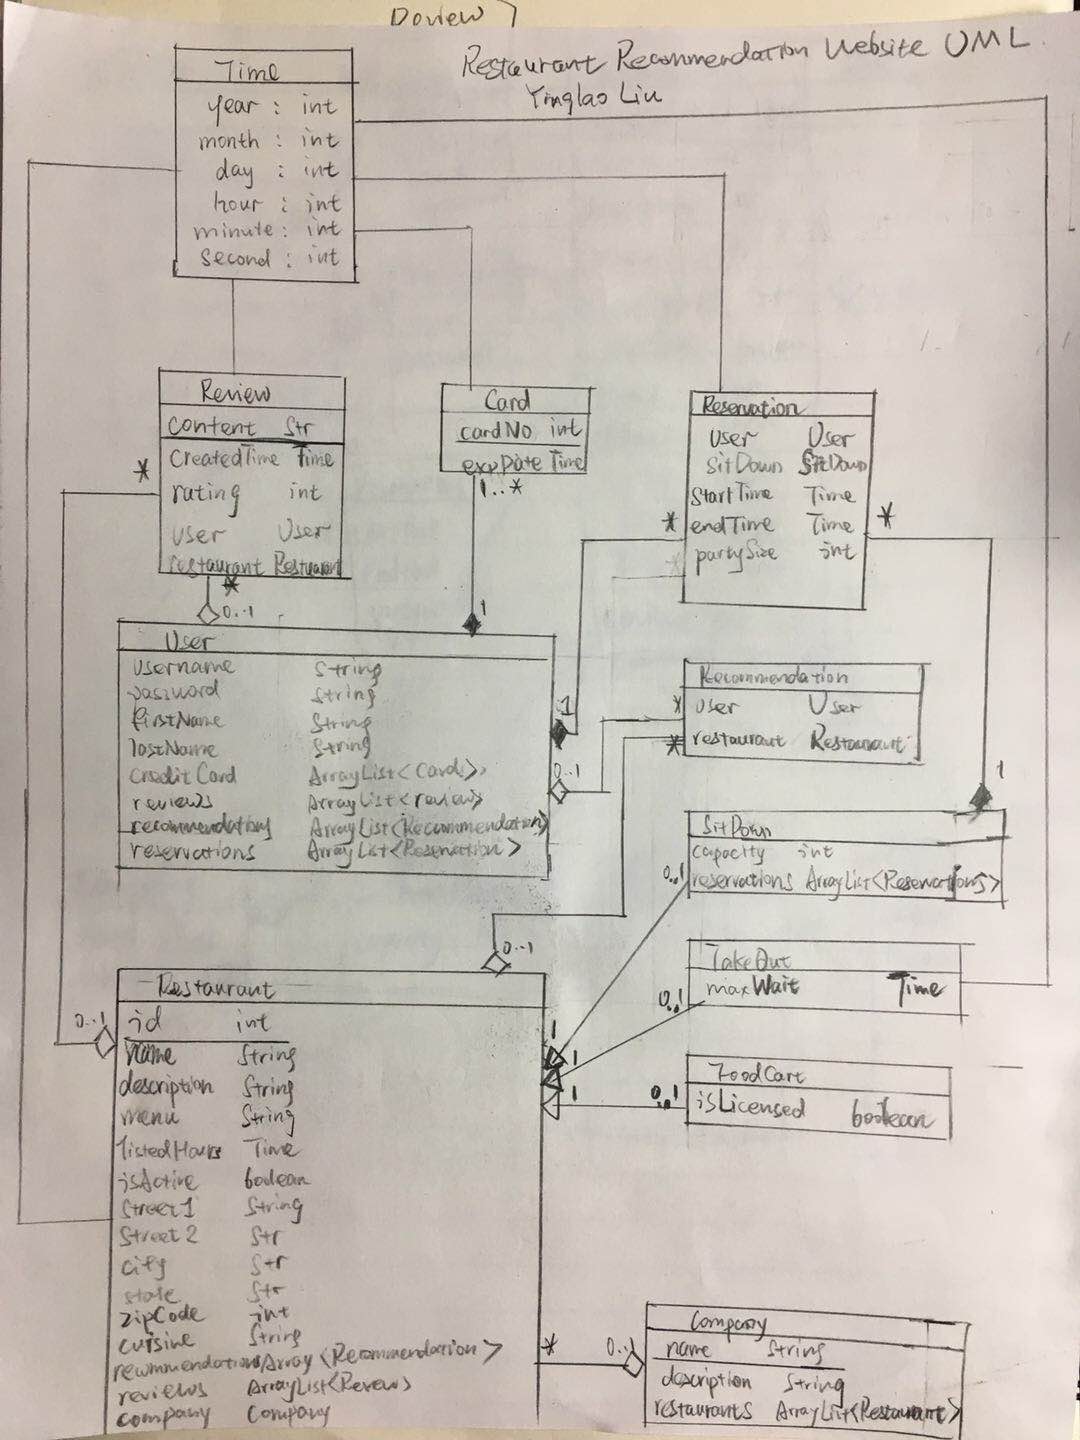 Doview
Restaurant Recommendation Website UML
Yingtao Liu
Time
year : int
month : int
day : int
hour : int
minute : int
second : int
Review
content Str
createdTime Time
rating int
user User
restaurant Restaurant
*
*
0..1
Card
cardNo int
expDate Time
1..*
1
Reservation
user User
sitDown SitDown
startTime Time
endTime Time
partySize int
*
*
*
User
username String
password String
firstName String
lastName String
creditCard ArrayList<Card>
reviews ArrayList<review>
recommendations ArrayList<Recommendation>
reservations ArrayList<Reservation>
1
0..1
Recommendation
user User
restaurant Restaurant
*
*
1
SitDown
capacity int
reservations ArrayList<Reservations>
0..1
TakeOut
maxWait Time
0..1
FoodCart
isLicensed boolean
0..1
0..1
1
1
1
Restaurant
id int
name String
description String
menu String
listedHours Time
isActive boolean
street1 String
street2 Str
city Str
state Str
zipCode int
cuisine String
recommendations Array<Recommendation>
reviews ArrayList<Review>
company Company
0..1
*
0..1
Company
name String
description String
restaurants ArrayList<Restaurant>